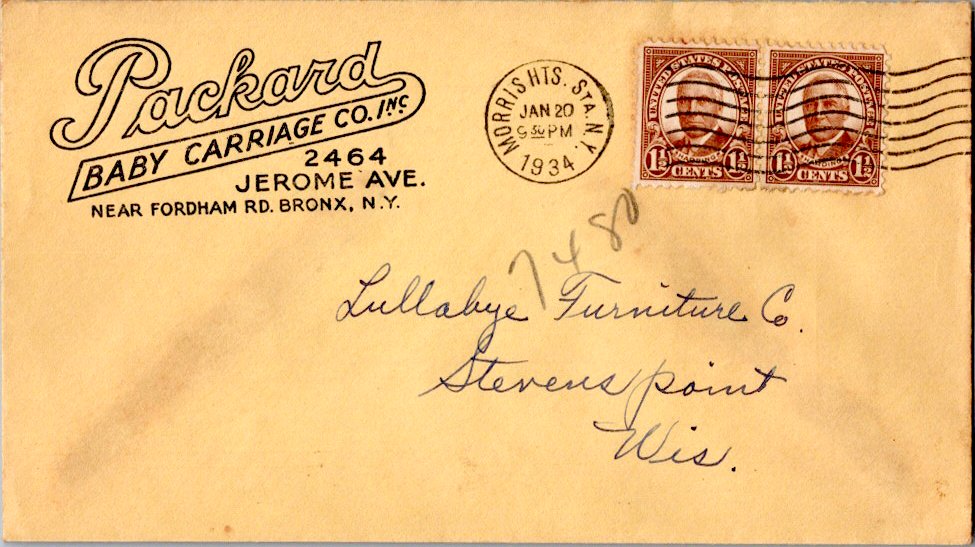 Packard
BABY CARRIAGE CO. INC
2464
JEROME AVE.
NEAR FORDHAM RD. BRONX, N.Y.
MORRIS HTS. STA. N.Y.
JAN 20
9 30 PM
1934
UNITED STATES POSTAGE
HARDING
1½ CENTS 1½
UNITED STATES POSTAGE
HARDING
1½ CENTS 1½
7480
Lullabye Furniture Co.
Stevens point
Wis.